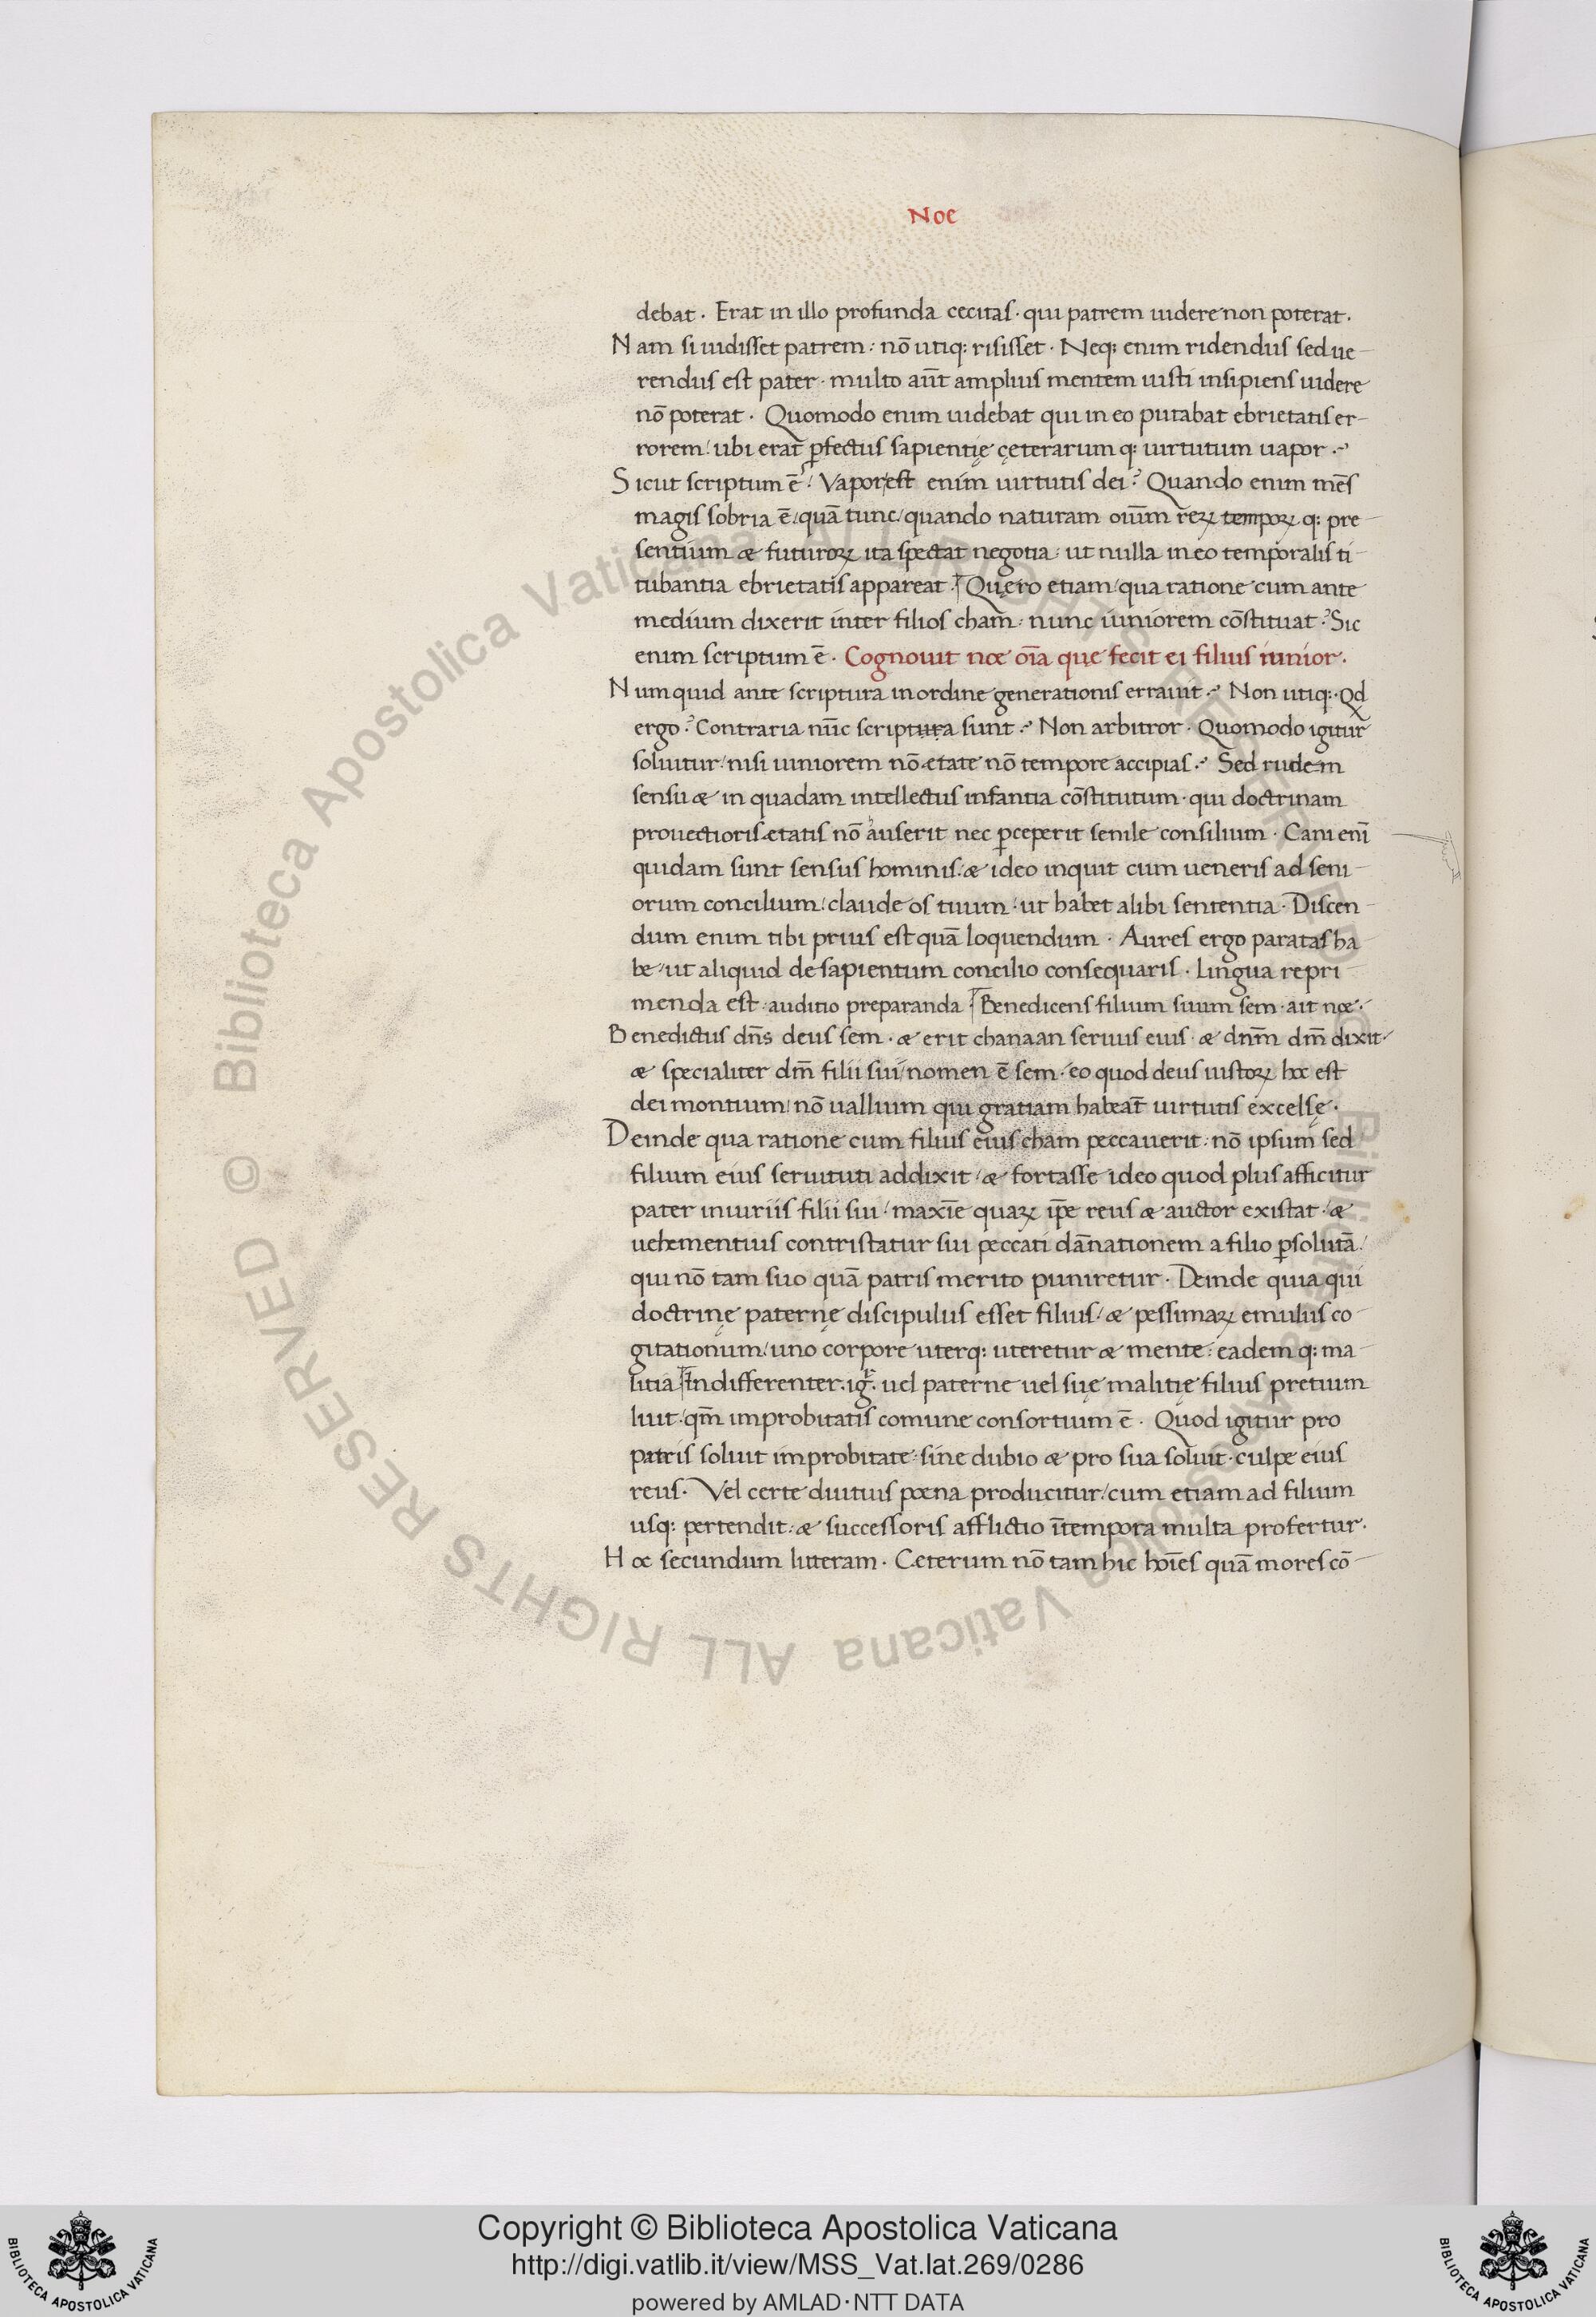 Noe
debat · Erat in illo profunda cecitas · qui patrem uidere non poterat ·
Nam si uidisset patrem : nō utiq; risisset · Neq; enim ridendus sed ue-
rendus est pater · multo aūt amplius mentem iusti insipiens uidere
nō poterat · Quomodo enim uidebat qui in eo putabat ebrietatis er-
rorem / ubi erat ꝑfectus sapientię cęterarum q; uirtutum uapor ·
Sicut scriptum ē / Vapor est enim uirtutis dei ? Quando enim mēs
magis sobria ē / quā tunc / quando naturam oīum reꝝ tempoꝝ q; pre-
sentium & futuroꝝ ita spectat negotia : ut nulla in eo temporalis ti-
tubantia ebrietatis appareat · Quęro etiam / qua ratione cum ante
medium dixerit inter filios cham · nunc iuniorem cōstituat ? Sic
enim scriptum ē · Cognouit noe oīa que fecit ei filius iunior ·
Numquid ante scriptura in ordine generationis errauit · Non utiq; · Qd
ergo ? Contraria nūc scriptura sunt · Non arbitror · Quomodo igitur
soluitur / nisi iuniorem nō ętate nō tempore accipias · Sed rudem
sensu & in quadam intellectus infantia cōstitutum · qui doctrinam
prouectioris ętatis nō auserit nec ꝑceperit senile consilium · Cani enī
quidam sunt sensus hominis : & ideo inquit cum ueneris ad seni-
orum concilium / claude os tuum / ut habet alibi sententia · Discen-
dum enim tibi prius est quā loquendum · Aures ergo paratas ha-
be / ut aliquid de sapientum concilio consequaris · Lingua repri-
menda est · auditio preparanda · Benedicens filium suum sem · ait noe ·
Benedictus dn̄s deus sem · & erit chanaan seruus eius · & dn̄m dm̄ dixit ·
& specialiter dm̄ filii sui / nomen ē sem · eo quod deus iustoꝝ hoc est
dei montium / nō uallium qui gratiam habeat̄ uirtutis excelsę ·
Deinde qua ratione cum filius eius cham peccauerit : nō ipsum sed
filium eius seruituti addixit / & fortasse ideo quod plus afficitur
pater iniuriis filii sui / maxīe quaꝝ ip̄e reus & auctor existat · &
uehementius contristatur sui peccati dānationem a filio ꝑsolutā /
qui nō tam suo quā patris merito puniretur · Deinde quia qui
doctrinę paternę discipulus esset filius / & pessimaꝝ emulus co-
gitationum / uno corpore uterq; uteretur & mente : eadem q; ma-
litia Indifferenter · ig̃ · uel paterne uel suę malitię filius pretium
luit · qm̄ improbitatis comune consortium ē · Quod igitur pro
patris soluit improbitate : sine dubio & pro sua soluit · culpe eius
reus · Vel certe diutius poena producitur / cum etiam ad filium
usq; pertendit : & successoris afflictio ītempora multa profertur ·
Hoc secundum litteram · Ceterum nō tam hic hoīes quā mores cō-
© Biblioteca Apostolica Vaticana ALL RIGHTS RESERVED © Biblioteca Apostolica Vaticana ALL RIGHTS RESERVED
Copyright © Biblioteca Apostolica Vaticana
http://digi.vatlib.it/view/MSS_Vat.lat.269/0286
powered by AMLAD·NTT DATA
BIBLIOTECA APOSTOLICA VATICANA
BIBLIOTECA APOSTOLICA VATICANA